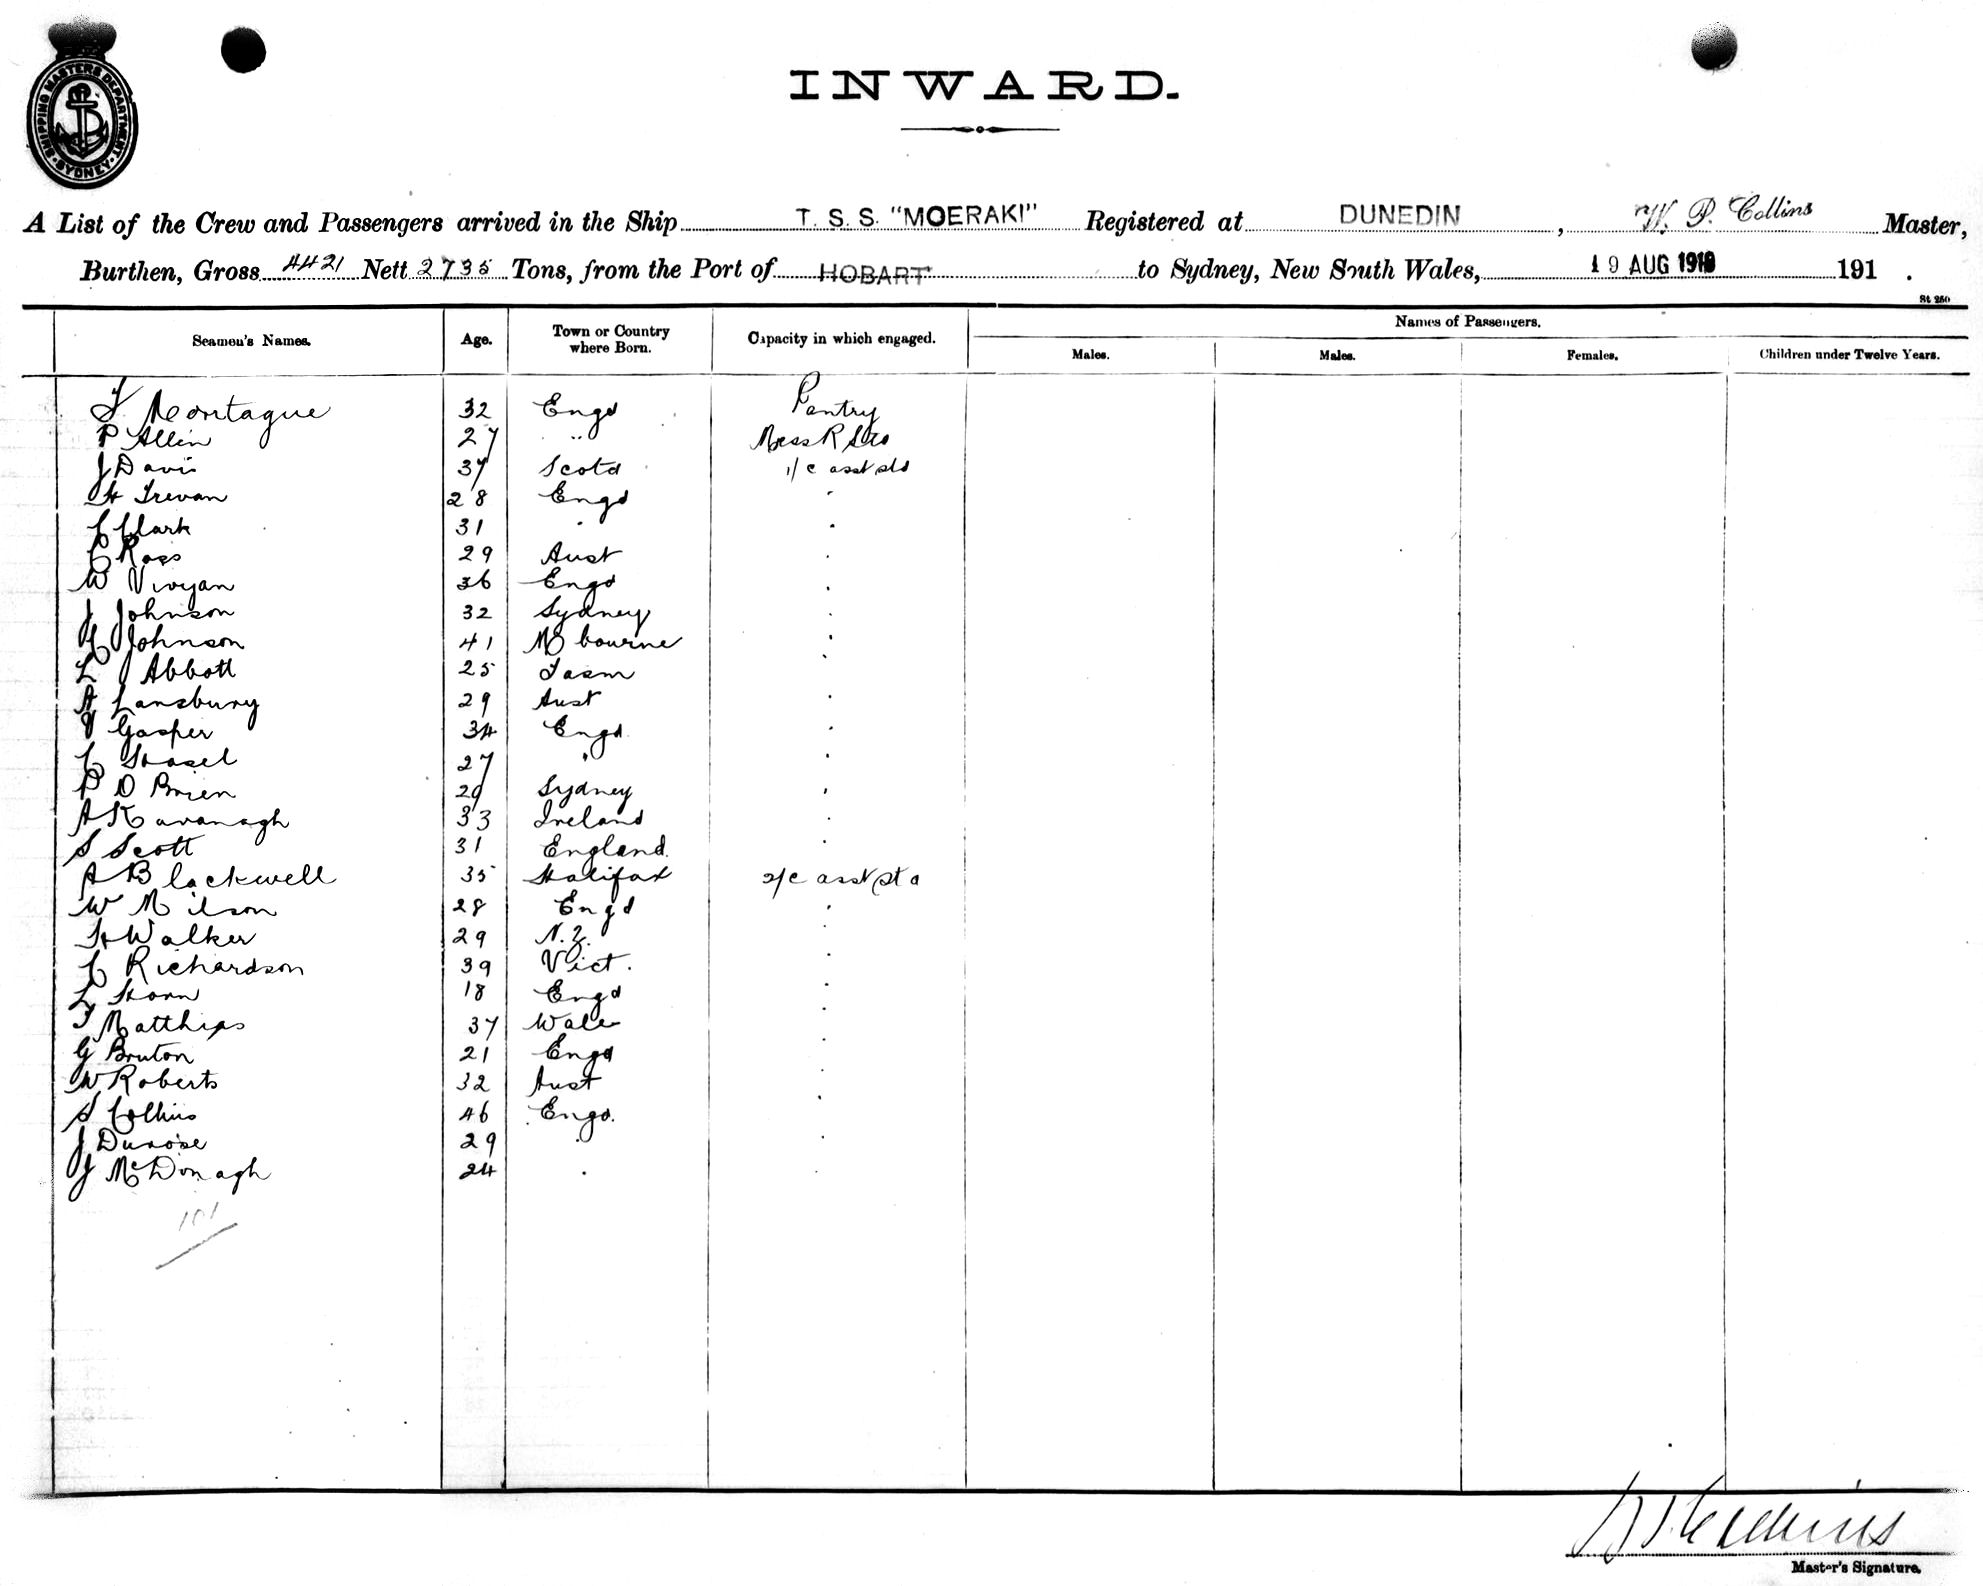 SHIPPING MASTERS DEPARTMENT
SYDNEY
INWARD.
A List of the Crew and Passengers arrived in the Ship T. S. S. "MOERAKI" Registered at DUNEDIN, W. P. Collins Master,
Burthen, Gross 4421 Nett 2735 Tons, from the Port of HOBART to Sydney, New South Wales, 19 AUG 1910 191 .
St 250
Seamen's Names. Age. Town or Country where Born. Capacity in which engaged. Names of Passengers.
Males. Males. Females. Children under Twelve Years.
F Montague 32 Engd Pantry
P Allen 27 " Mess R Std
J Davis 37 Scotd 1/c asst std
H Trevan 28 Engd "
C Clark 31 " "
C Ross 29 Aust "
W Vivyan 36 Engd "
J Johnson 32 Sydney "
C Johnson 41 M bourne "
L Abbott 25 Tasm "
A Lansbury 29 Aust "
V Gasper 34 Engd "
C Hasel 27 " "
P O Brien 29 Sydney "
A Kavanagh 33 Ireland "
S Scott 31 England "
A Blackwell 35 Halifax 2/c asst std
W Milson 28 Engd "
H Walker 29 N.Z. "
C Richardson 39 Vict. "
L Horn 18 Engd "
T Matthias 37 Wales "
G Bruton 21 Engd "
W Roberts 32 Aust "
S Collins 46 Engd. "
J Durose 29 " "
J McDonagh 24 " "
101
W P Collins
Master's Signature.